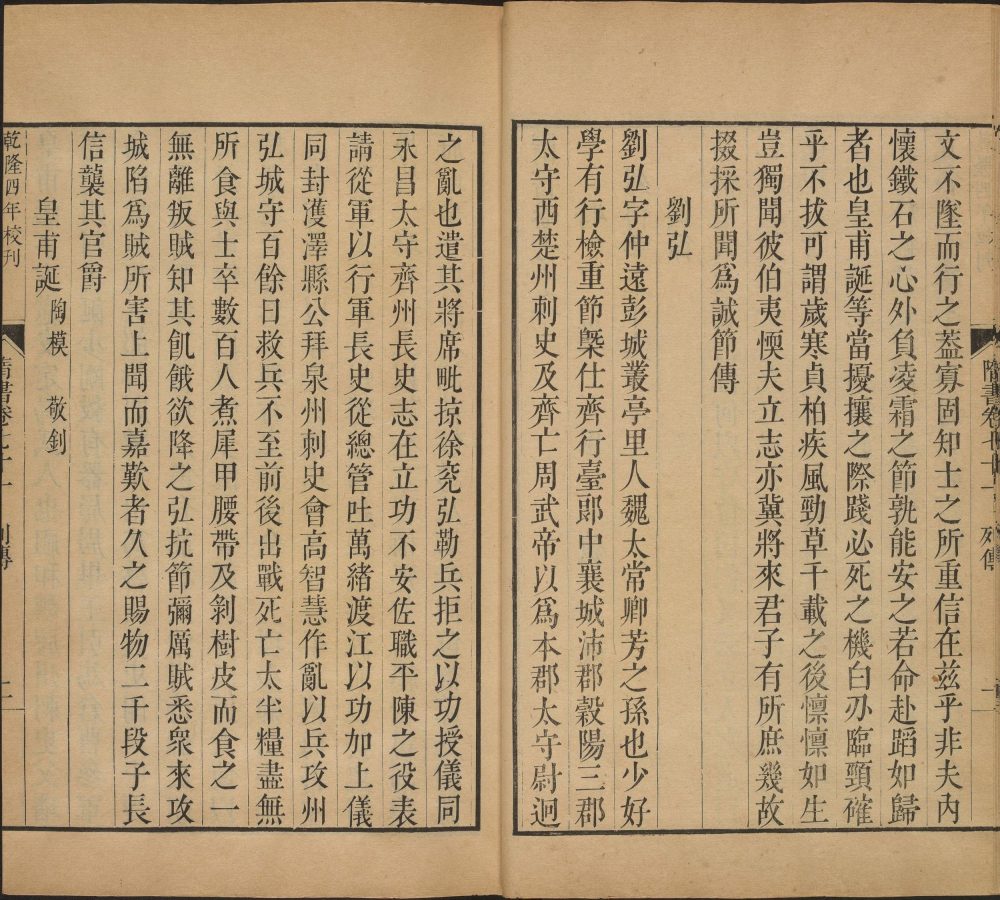 文不墜而行之蓋寡固知士之所重信在茲乎非夫內
懷鐵石之心外負凌霜之節孰能安之若命赴蹈如歸
者也皇甫誕等當擾攘之際踐必死之機白刃臨頸確
乎不拔可謂歲寒貞柏疾風勁草千載之後懍懍如生
豈獨聞彼伯夷懦夫立志亦冀將來君子有所庶幾故
掇採所聞為誠節傳
劉弘
劉弘字仲遠彭城叢亭里人魏太常卿芳之孫也少好
學有行檢重節槩仕齊行臺郎中襄城沛郡穀陽三郡
太守西楚州刺史及齊亡周武帝以為本郡太守尉迥
之亂也遣其將席毗掠徐兗弘勒兵拒之以功授儀同
永昌太守齊州長史志在立功不安佐職平陳之役表
請從軍以行軍長史從總管吐萬緒渡江以功加上儀
同封濩澤縣公拜泉州刺史會高智慧作亂以兵攻州
弘城守百餘日救兵不至前後出戰死亡太半糧盡無
所食與士卒數百人煮犀甲腰帶及剝樹皮而食之一
無離叛賊知其飢餓欲降之弘抗節彌厲賊悉衆來攻
城陷為賊所害上聞而嘉歎者久之賜物二千段子長
信襲其官爵
皇甫誕 陶模 敬釗
乾隆四年校刊
隋書卷七十一 列傳
二